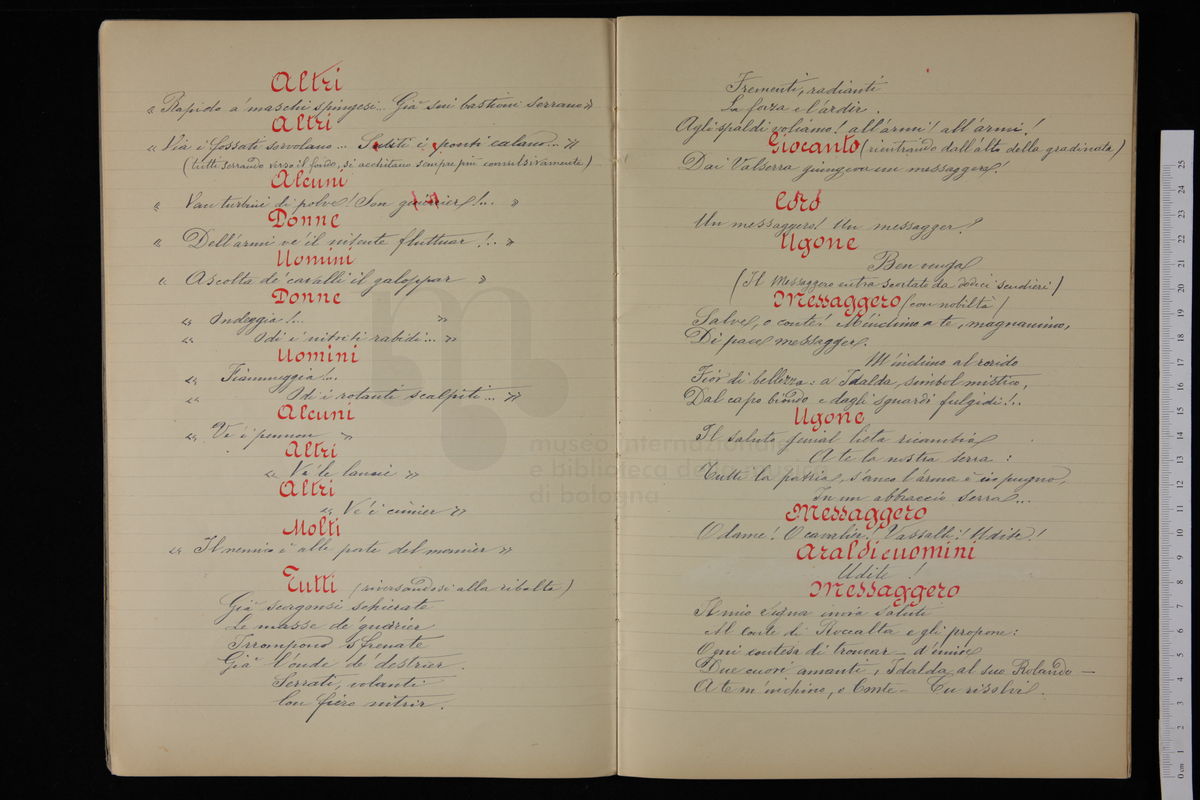 Altri
« Rapido a' maschi spingesi... Già sui bastioni serrano »
Altri
« Via i fossati sorvolano... Saliti i ponti calano... »
(tutti serrando verso il fondo, si accostano sempre più convulsivamente)
Alcuni
« Van turbini di polve! Son guerrier!... »
Donne
« Dell'armi ve' il nitente fluttuar!.. »
Uomini
« Ascolta de' cavalli il galoppar »
Donne
« Ondeggia!...
Odi i nitriti rabidi... »
Uomini
« Fiammeggia!...
« Odi i rotanti scalpiti... »
Alcuni
« Ve' i pennon »
Altri
« Ve' le lancie »
Altri
« Ve' i cimier »
Molti
« Il nemico è alle porte del manier »
Tutti (riversandosi alla ribalta)
Già surgonsi schierate
Le masse de' guerrier
Irrompono sfrenate
Già l'onde de' destrier.
Serrati, volanti
Con fiero nitrir.
Frementi, radianti
La forza e l'ardir.
Agli spaldi voliamo! all'armi! all'armi!
Giocanto (rientrando dall'alto della gradinata)
Dai Valserra giungeva un messagger!
Coro
Un messaggero! Un messagger?
Ugone
Ben venga
(Il Messaggero entra scortato da dodici scudieri)
Messaggero (con nobiltà)
Salve, o conte! M'inchino a te, magnanimo,
Di pace messagger.
M'inchino al rorido
Fior di bellezza: a Idalda, simbol mistico,
Dal capo biondo e dagli sguardi fulgidi!..
Ugone
Il saluto genial lieta ricambia
A te la nostra terra:
Tutti la patria, s'anco l'arma è in pugno,
In un abbraccio serra...
Messaggero
O dame! O cavalier! Vassalli! Udite!
Araldi e uomini
Udite!
Messaggero
Il mio Signor invia saluti
Al Conte di Roccalta e gli propone:
Ogni contesa di troncar - d'unire
Due cuori amanti, Idalda al suo Rolando -
A te m'inchino, o Conte - Tu risolvi.
museo internazionale
e biblioteca della musica
di bologna